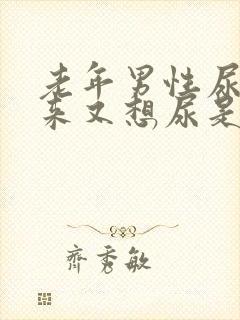 老年男性尿
来又想尿是
齐秀敏